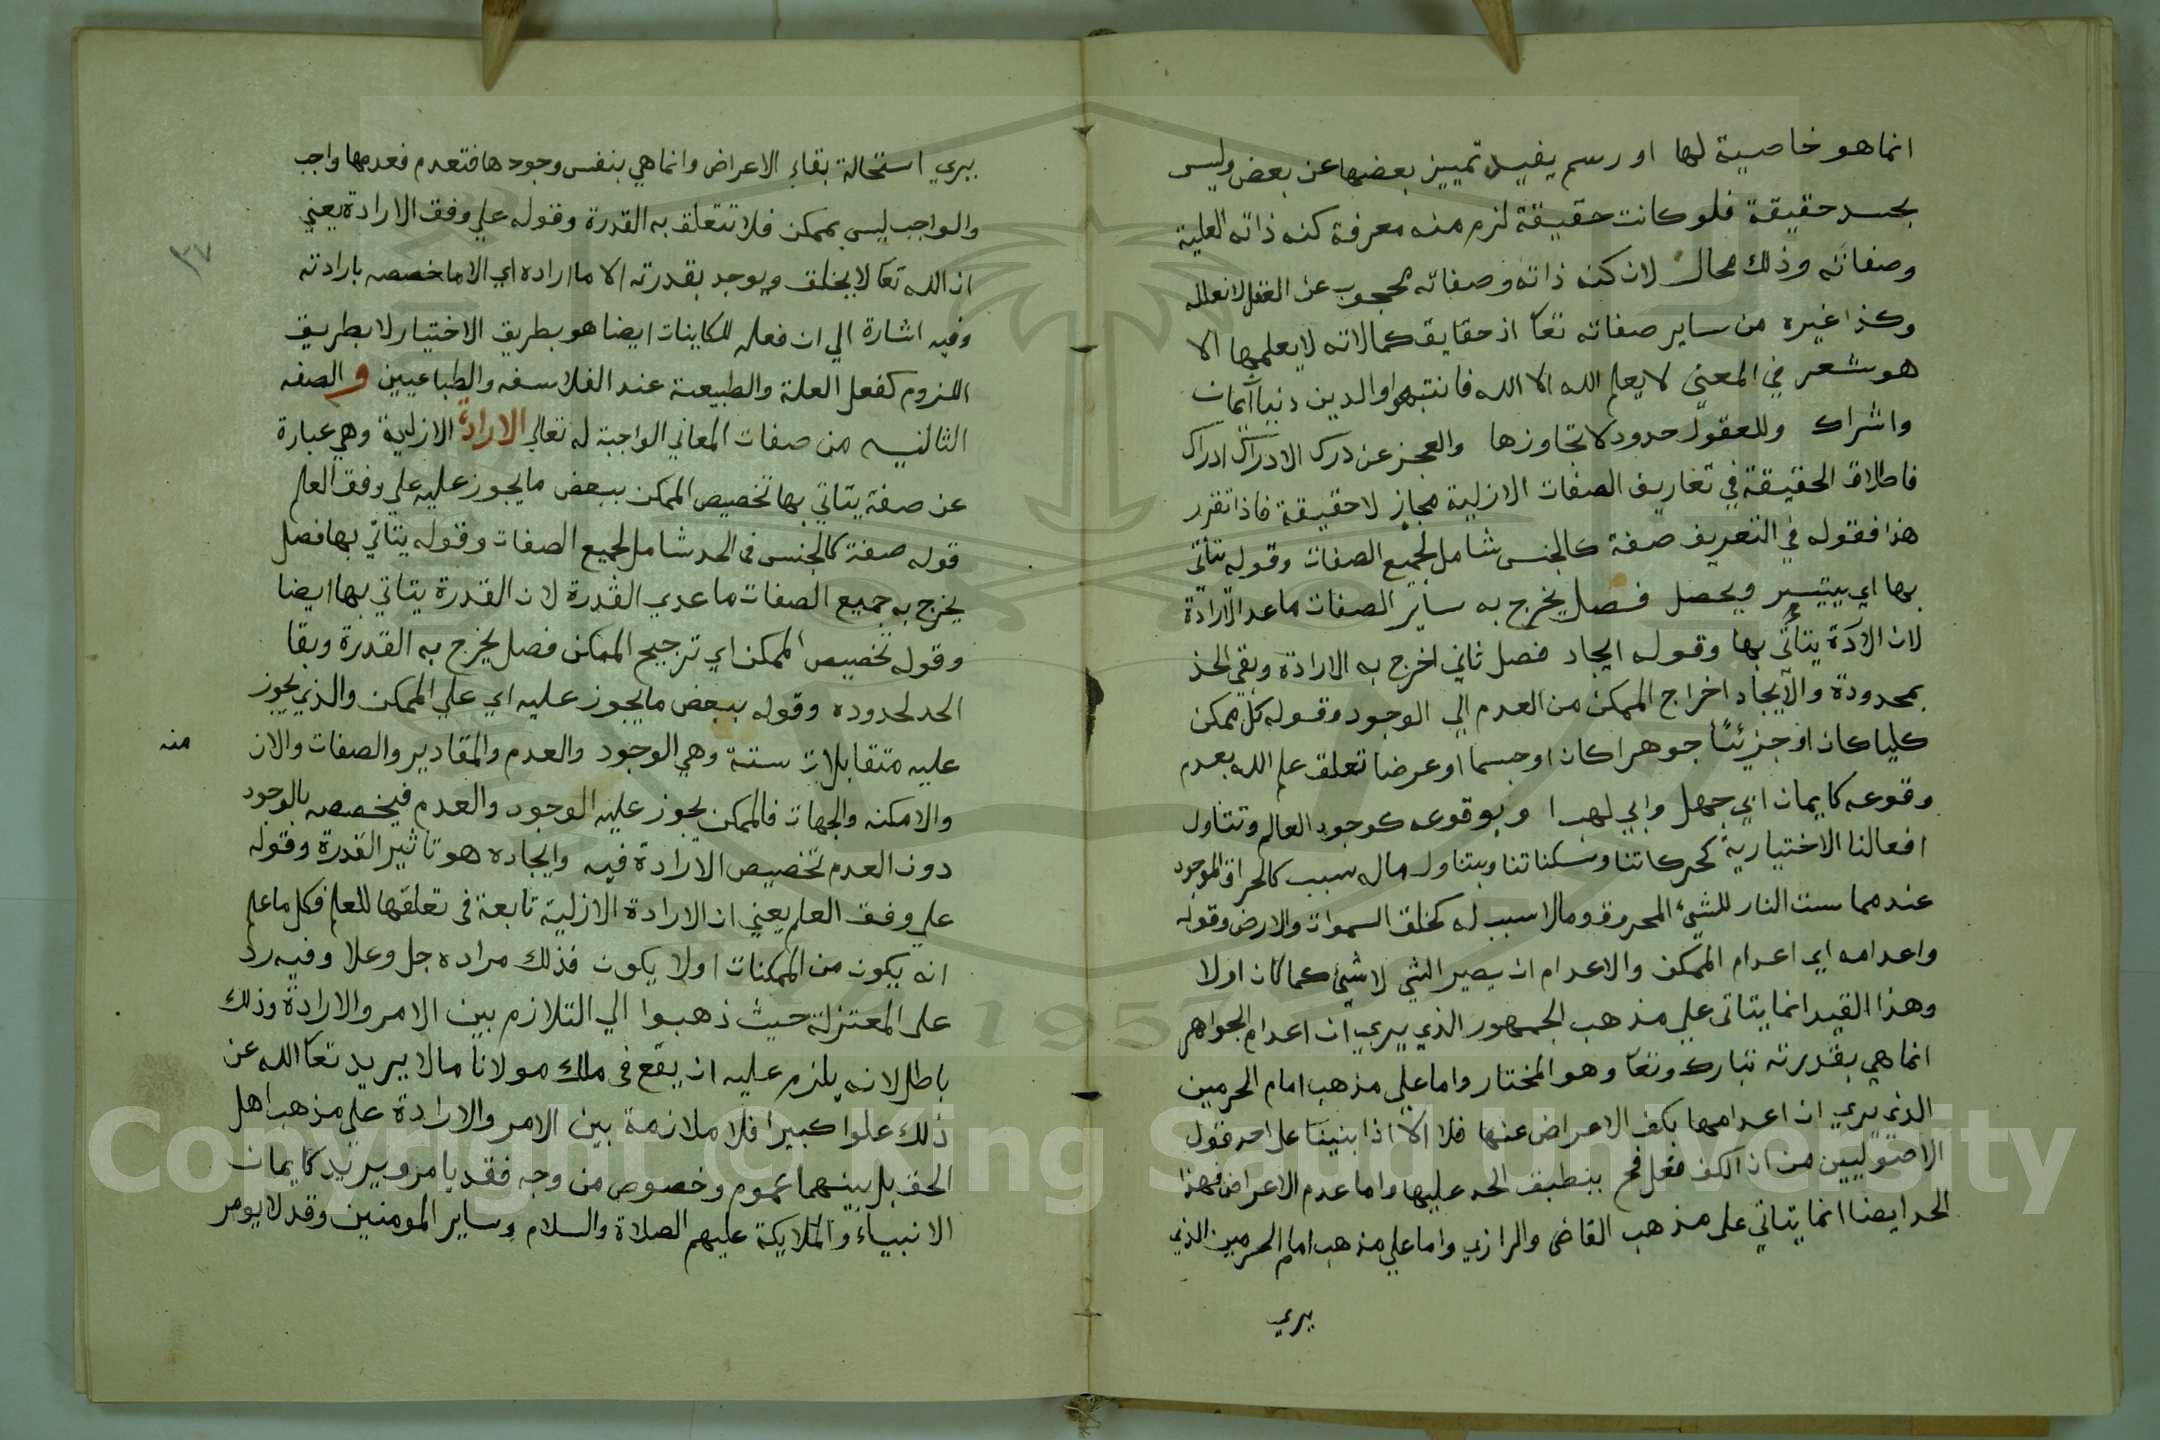 انما هو خاصية لها او رسم يفيد تمييز بعضها عن بعض وليس
بحد حقيقة فلو كانت حقيقة لزم منه معرفة كنه ذاته العلية
وصفاته وذلك محال لان كنه ذاته وصفاته محجوب عن العقل لا نعلمه
وكذا غيره من ساير صفاته تعا اذ حقايق كمالاته لا يعلمها الا
هو شعر في المعني لا يعلم الله الا الله فانتبهوا والدين دنيا ايمان
واشراك وللعقول حدود لا تجاوزها والعجز عن درك الادراك ادراك
فاطلاق الحقيقة في تعاريف الصفات الازلية مجاز لا حقيقة فاذا تقرر
هذا فقوله في التعريف صفة كالجنس شامل لجميع الصفات وقوله يتأتي
بها اي يتيسر ويحصل فصل يخرج به ساير الصفات ما عدا الارادة
لان الارادة يتأتى بها وقوله ايجاد فصل ثاني اخرج به الارادة وبقي الحد
بمحدودة والايجاد اخراج الممكن من العدم الي الوجود وقوله كل ممكن
كليا كان او جزئيا جوهرا كان او جسما او عرضا تعلق علم الله بعدم
وقوعه كايمان ابي جهل وابي لهب او بوقوعه كوجود العالم وتتناول
افعالنا الاختيارية كحركاتنا وسكناتنا ويتناول ماله سبب كالحراق الموجود
عند مماست النار للشيء المحروق وما لا سبب له كخلق السموات والارض وقوله
واعدامه اي اعدام الممكن والاعدام ان يصير الشي لا شيء كما كان اولا
وهذا القيد انما يتاتى علي مذهب الجمهور الذي يري ان اعدام الجواهر
انما هي بقدرته تبارك وتعا وهو المختار واما علي مذهب امام الحرمين
الذي يري ان اعدامها بكف الاعراض عنها فلا الا اذا بنينا على احد قول
الاصوليين من ان الكف فعل فح ينطبق الحد عليها واما عدم الاعراض فهذا
الحد ايضا انما يتاتي على مذهب القاضى والرازي واما علي مذهب امام الحرمين الذي
يري
يري استحالة بقاء الاعراض وانما هي بنفس وجودها فتعدم فعدمها واجب
والواجب ليس بممكن فلا تتعلق به القدرة وقوله علي وفق الارادة يعني
ان الله تعا لا يخلق ويوجد بقدرته الا ما اراده اي الا ما خصصه بارادته
وفيه اشارة الي ان فعله للكاينات ايضا هو بطريق الاختيار لا بطريق
اللزوم كفعل العلة والطبيعة عند الفلاسفه والطباعيين و الصفه
الثانيه من صفات المعاني الواجبة له تعالي الارادة الازلية وهي عبارة
عن صفة يتاتي بها تخصيص الممكن ببعض ما يجوز عليه علي وفق العلم
قوله صفة كالجنس فى الحد شامل لجميع الصفات وقوله يتاتي بها فصل
يخرج به جميع الصفات ما عدي القدرة لان القدرة يتاتي بها ايضا
وقوله تخصيص الممكن اي ترجيح الممكن فصل يخرج به القدرة وبقا
الحد لحدوده وقوله ببعض ما يجوز عليه اي علي الممكن والذي يجوز
عليه متقابلات ستة وهي الوجود والعدم والمقادير والصفات والان
منه
والامكنه والجهات فالممكن يجوز عليه الوجود والعدم فيخصصه بالوجود
دون العدم تخصيص الارادة فيه وايجاده هو تاثير القدرة وقوله
علي وفق العلم يعني ان الارادة الازلية تابعة فى تعلقها للعلم فكل ما علم
انه يكون من الممكنات اولا يكون فذلك مراده جل وعلا وفيه رد
على المعتزلة حيث ذهبوا الي التلازم بين الامر والارادة وذلك
باطل لانه يلزم عليه ان يقع فى ملك مولانا مالا يريد تعا الله عن
ذلك علوا كبيرا فلا ملازمة بين الامر والارادة علي مذهب اهل
الحق بل بينهما عموم وخصوص من وجه فقد يامر ويريد كايمان
الانبياء والملايكة عليهم الصلاة والسلام وساير المومنين وقد لا يومر
٣٧
Copyright © King Saud University
1957